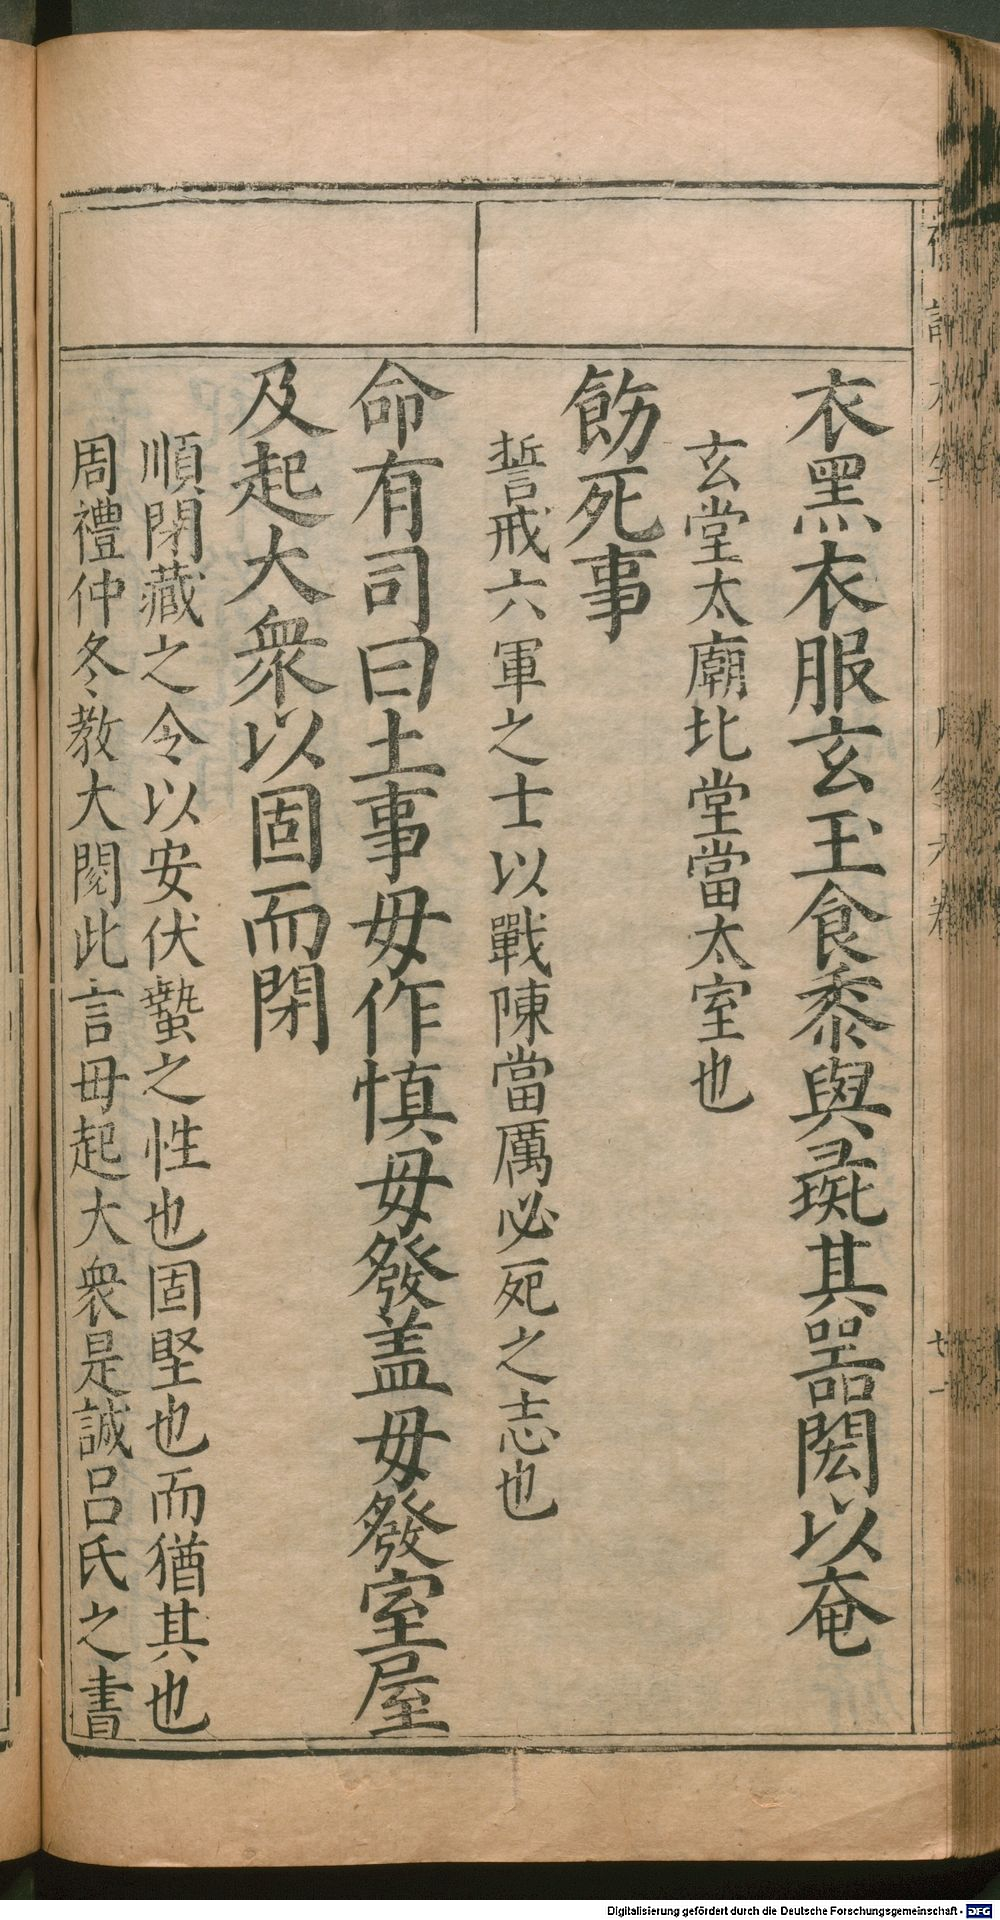 衣黑衣服玄玉食黍與彘其器閎以奄
玄堂太廟北堂當太室也
飭死事
誓戒六軍之士以戰陳當厲必死之志也
命有司曰土事毋作慎毋發盖毋發室屋
及起大衆以固而閉
順閉藏之令以安伏蟄之性也固堅也而猶其也
周禮仲冬教大閱此言毋起大衆是誠呂氏之書
Digitalisierung gefördert durch die Deutsche Forschungsgemeinschaft - DFG